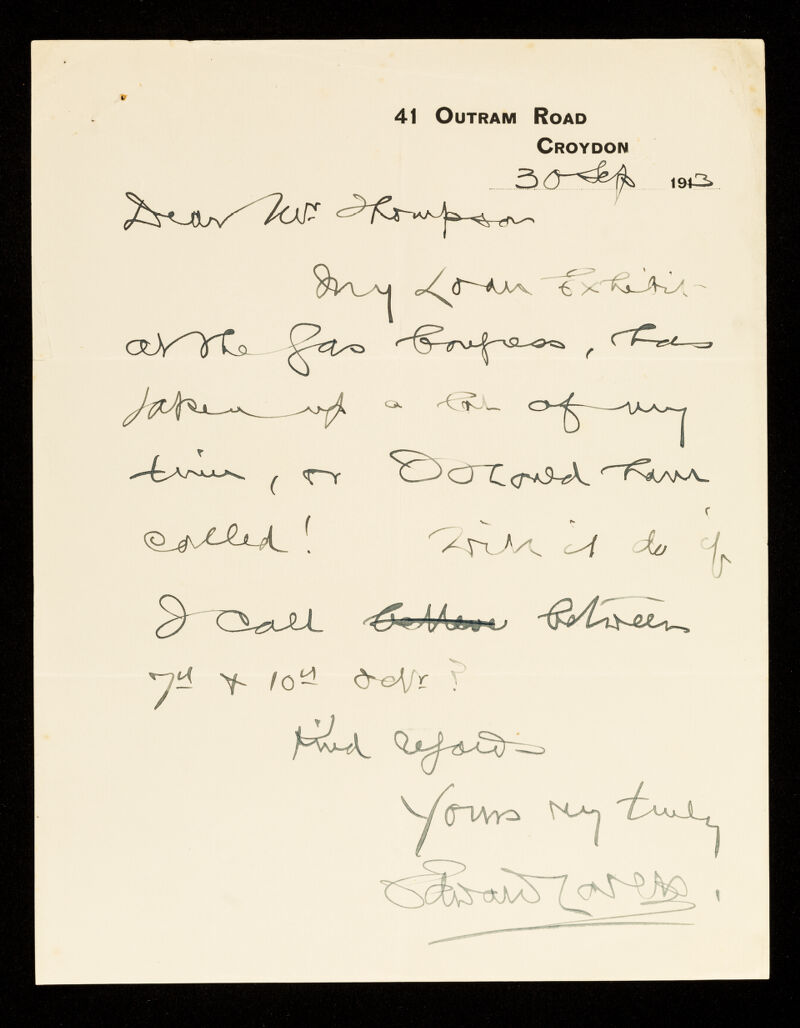 41 OUTRAM ROAD
CROYDON
30 Sep 1913
Dear Mr Thompson
My Loan Exhibit
at the Gas Congress, has
taken up a lot of my
time, or I should have
called! Will it do if
I call between
7th & 10th Octr?
Kind regards
Yours very truly
Edward Lovett.